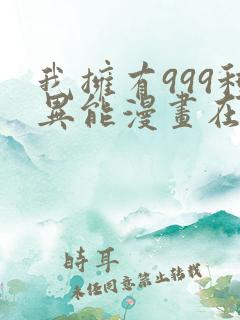 我擁有999種
異能漫畫在
時耳
未经同意禁止转载